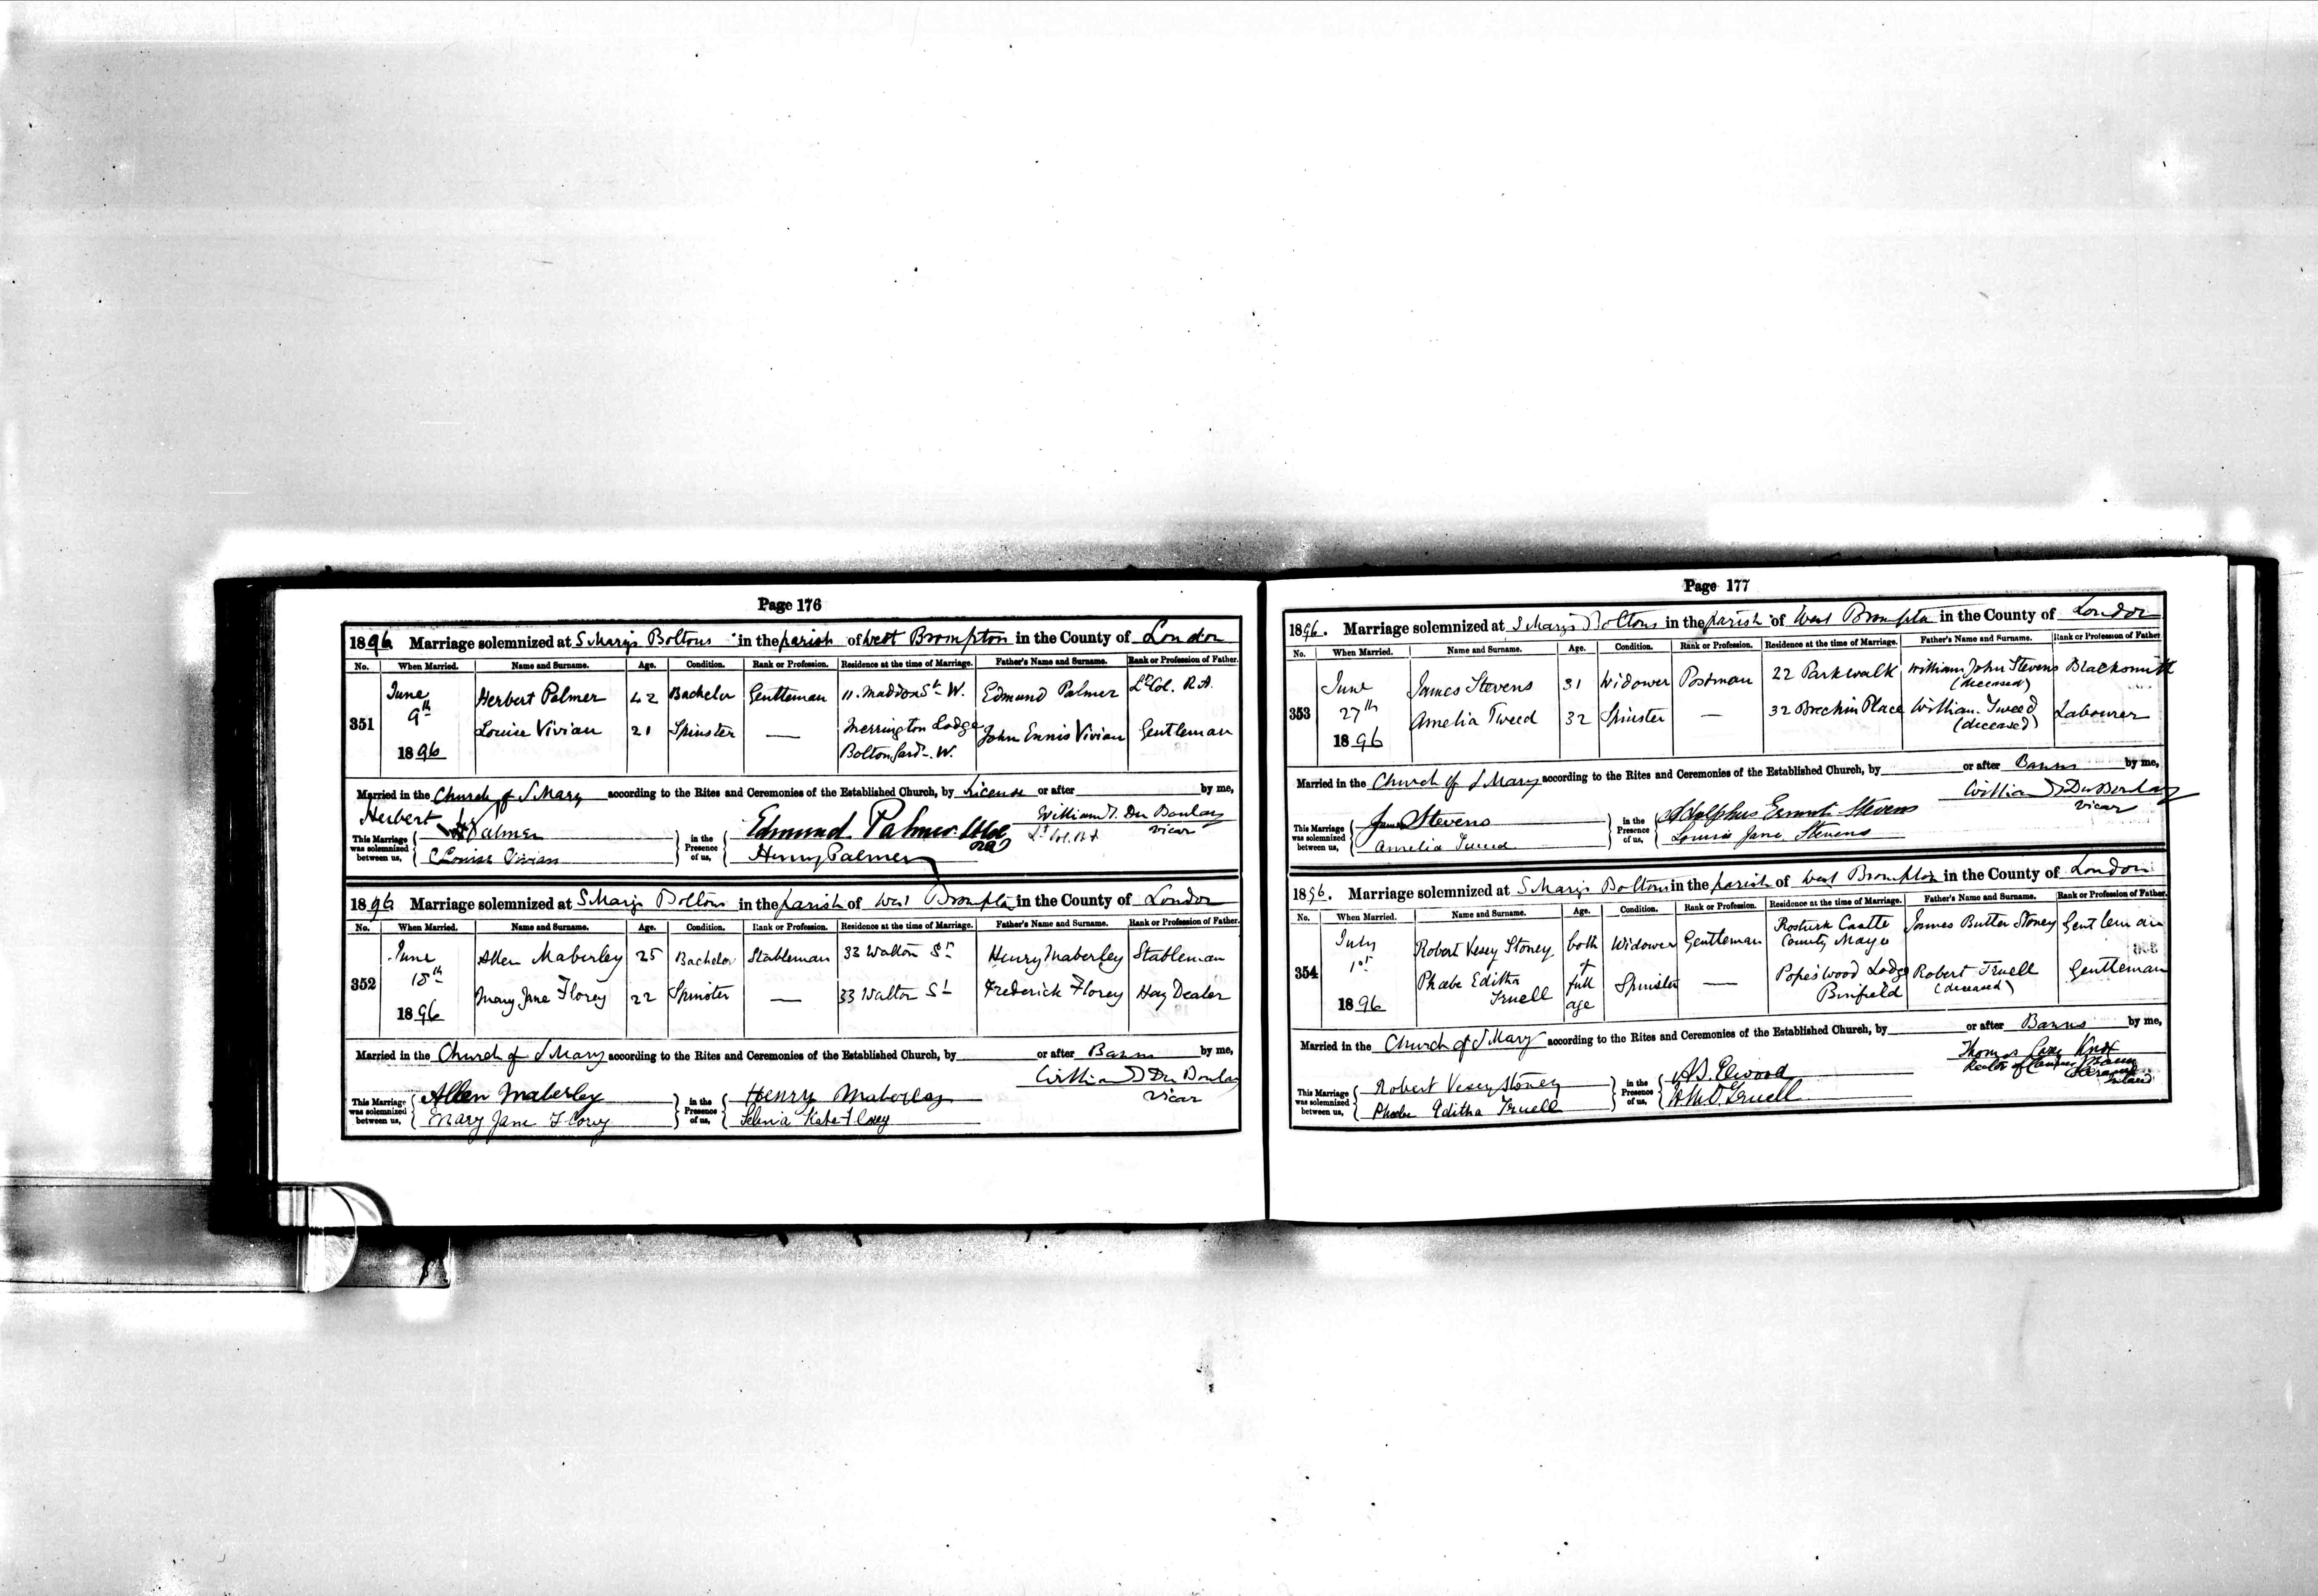 Page 176
1896 Marriage solemnized at S Mary's Boltons in the parish of West Brompton in the County of London
No. When Married. Name and Surname. Age. Condition. Rank or Profession. Residence at the time of Marriage. Father's Name and Surname. Rank or Profession of Father.
351 June 9th 1896
Herbert Palmer 42 Bachelor Gentleman 11. Maddox St. W. Edmund Palmer Lt Col. R.A.
Louise Vivian 21 Spinster — Merrington Lodge Bolton Gards. W. John Ennis Vivian Gentleman
Married in the Church of S Mary according to the Rites and Ceremonies of the Established Church, by License or after by me,
This Marriage was solemnized between us, Herbert Palmer Louise Vivian in the Presence of us, Edmund Palmer Henry Palmer William T. Du Boulay Vicar
Lt Col. R.A
1896 Marriage solemnized at S Mary's Boltons in the parish of West Brompton in the County of London
No. When Married. Name and Surname. Age. Condition. Rank or Profession. Residence at the time of Marriage. Father's Name and Surname. Rank or Profession of Father.
352 June 18th 1896
Allen Maberley 25 Bachelor Stableman 33 Walton St Henry Maberley Stableman
Mary Jane Florey 22 Spinster — 33 Walton St Frederick Florey Hay Dealer
Married in the Church of S Mary according to the Rites and Ceremonies of the Established Church, by or after Banns by me,
This Marriage was solemnized between us, Allen Maberley Mary Jane Florey in the Presence of us, Henry Maberley Selina Kate Florey William T Du Boulay Vicar
Page 177
1896. Marriage solemnized at S Mary's Boltons in the parish of West Brompton in the County of London
No. When Married. Name and Surname. Age. Condition. Rank or Profession. Residence at the time of Marriage. Father's Name and Surname. Rank or Profession of Father
353 June 27th 1896
James Stevens 31 Widower Postman 22 Park walk William John Stevens (deceased) Blacksmith
Amelia Tweed 32 Spinster — 32 Brechin Place William Tweed (deceased) Labourer
Married in the Church of S Mary according to the Rites and Ceremonies of the Established Church, by or after Banns by me,
This Marriage was solemnized between us, James Stevens Amelia Tweed in the Presence of us, Adolphus Ernest Stevens Louisa Jane Stevens William T Du Boulay Vicar
1896. Marriage solemnized at S Mary's Boltons in the parish of West Brompton in the County of London
No. When Married. Name and Surname. Age. Condition. Rank or Profession. Residence at the time of Marriage. Father's Name and Surname. Rank or Profession of Father.
354 July 1st 1896
Robert Vesey Stoney both of full age Widower Gentleman Rosturk Castle County Mayo James Butler Stoney Gentleman
Phoebe Editha Truell Spinster — Popeswood Lodge Binfield Robert Truell (deceased) Gentleman
Married in the Church of S Mary according to the Rites and Ceremonies of the Established Church, by or after Banns by me,
This Marriage was solemnized between us, Robert Vesey Stoney Phoebe Editha Truell in the Presence of us, Truell Thomas Knox Rector of Ireland